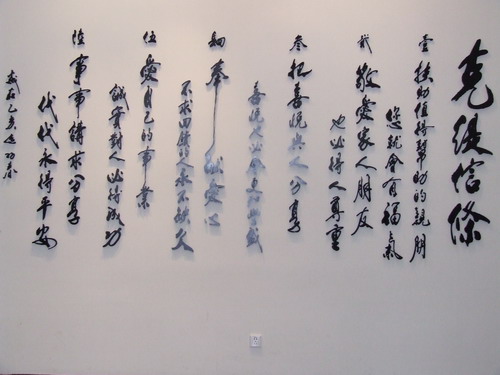 克緹信條
壹 扶助值得幫助的親朋
您就會有福氣
貳 敬愛家人朋友
也必得人尊重
叁 把喜悅與人分享
喜悅必會更加興盛
肆 奉獻愛心
不求回饋的人永不缺欠
伍 愛自己的事業
誠實對人必得成功
陸 事事 分享
代代永得平安
歲在乙亥